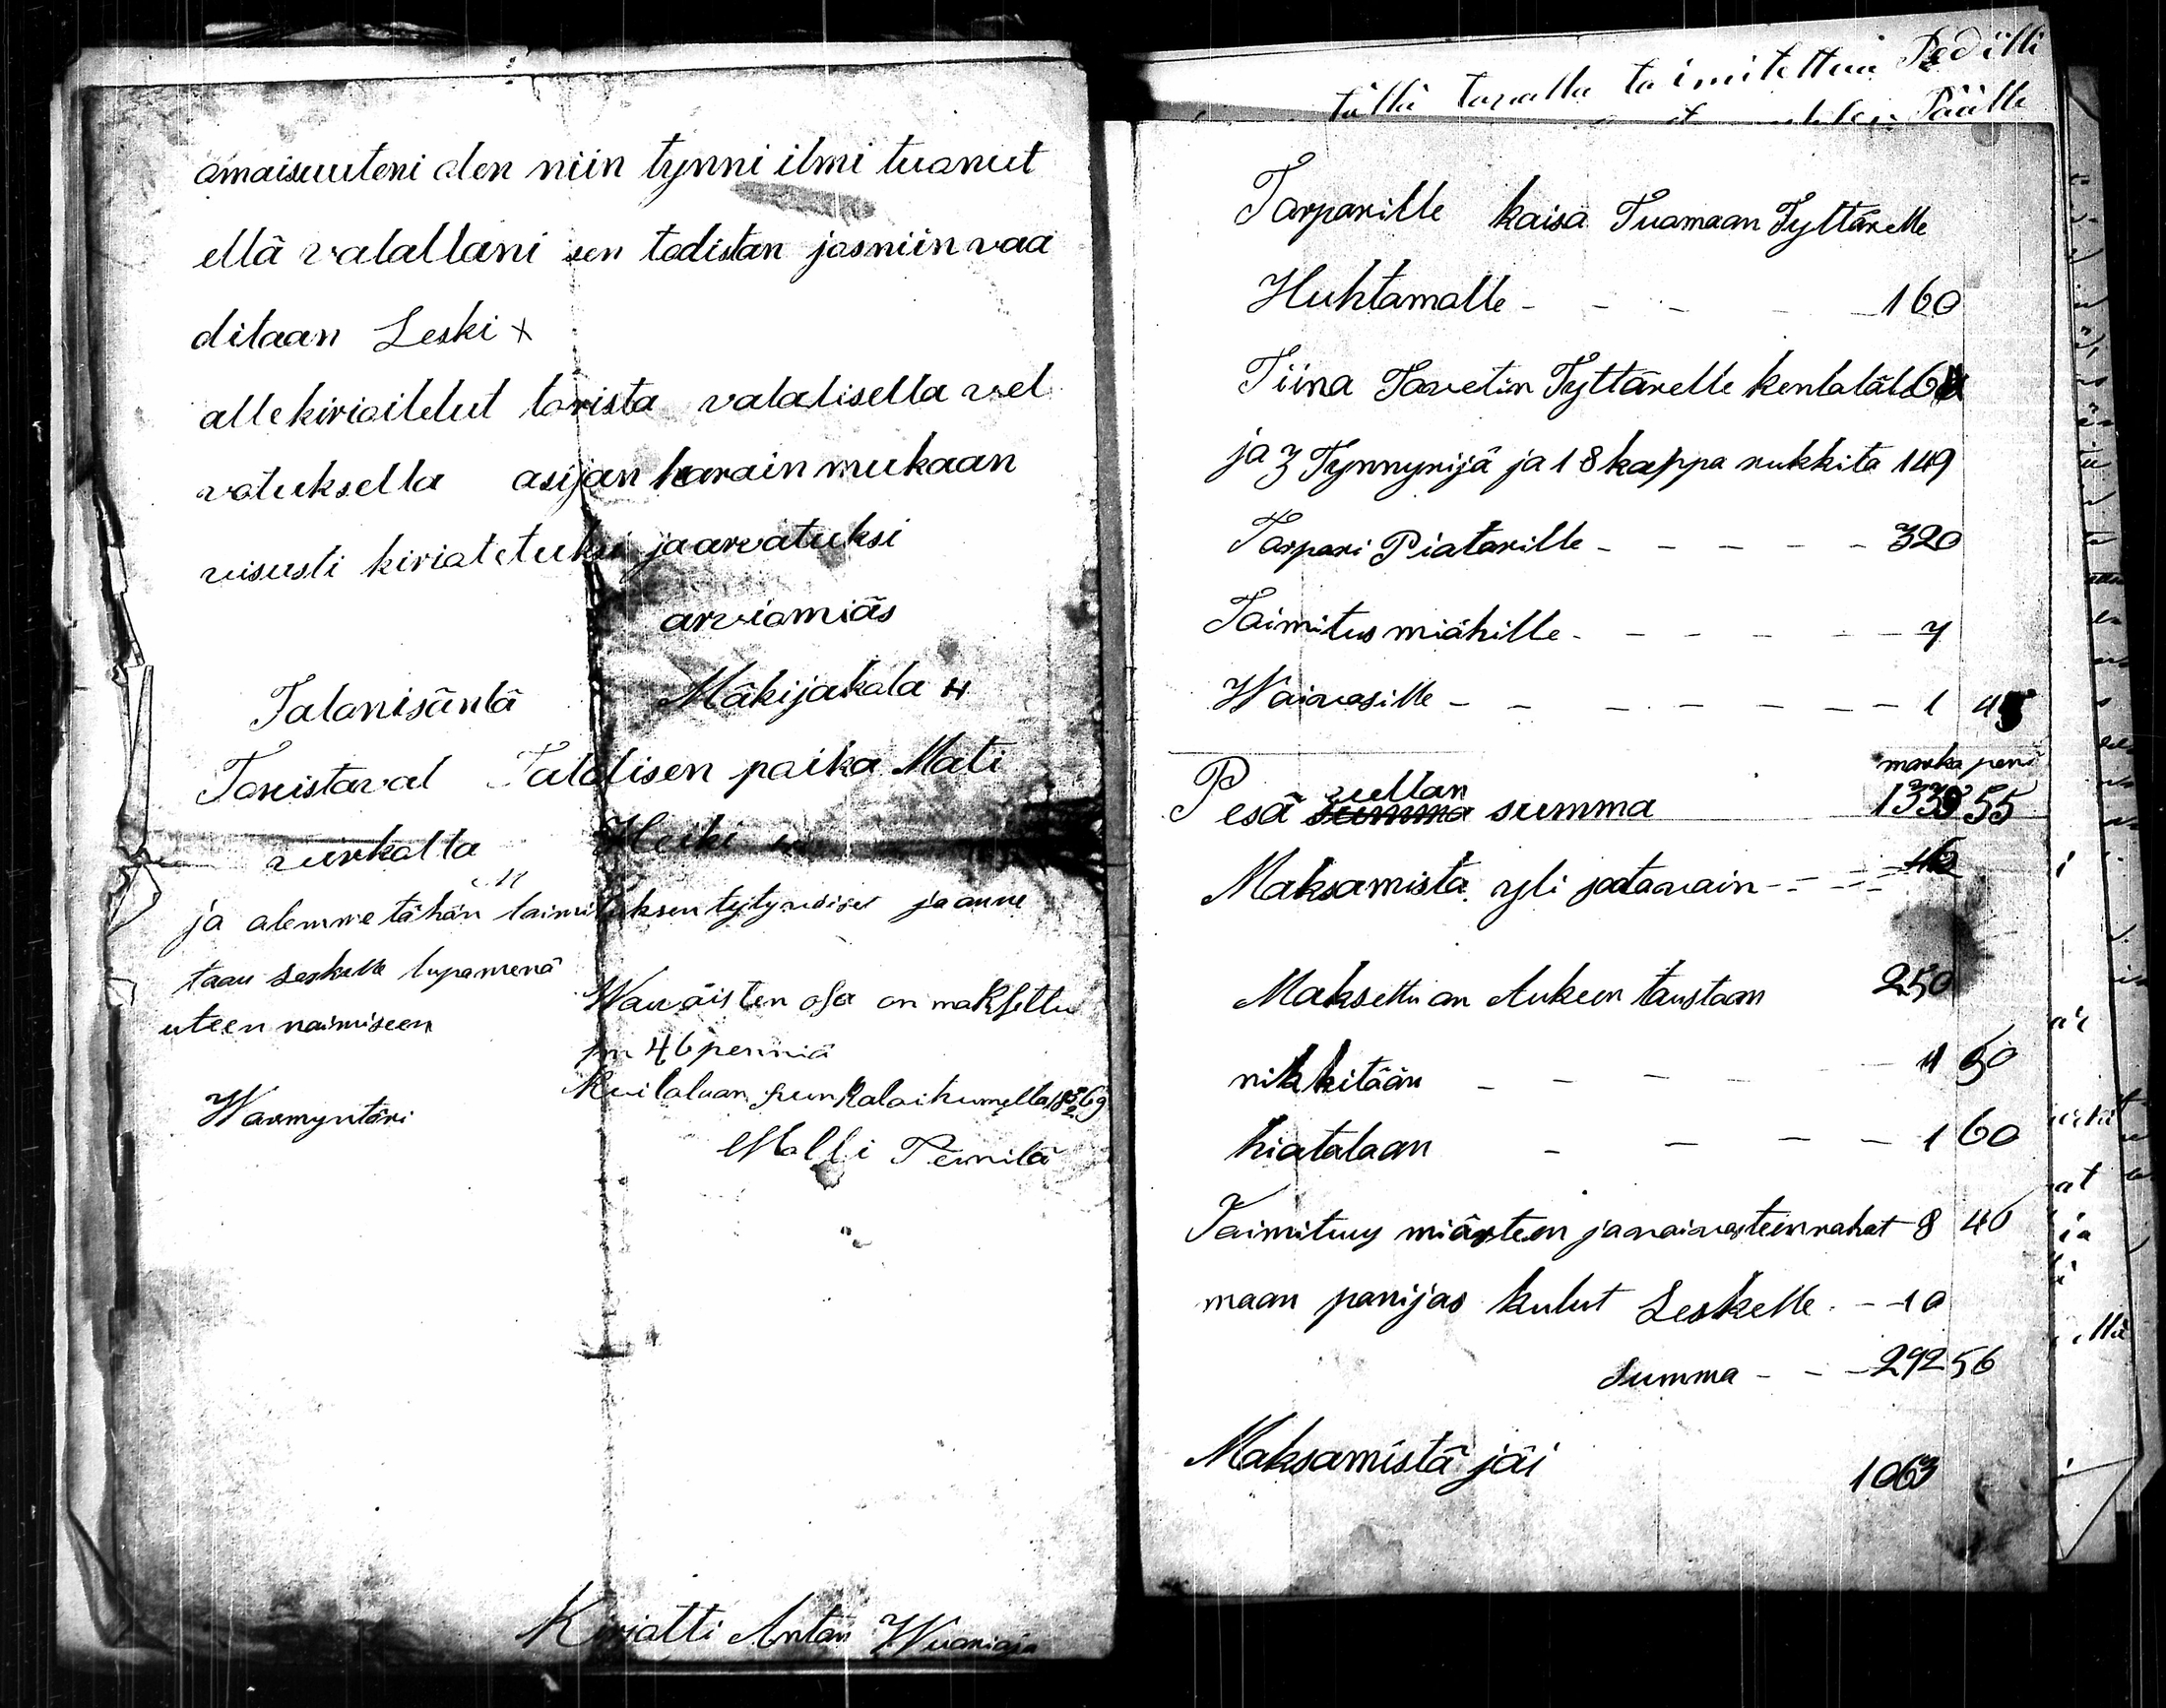 omaisuuteni olen niin tynni ilmi tuanut
ellä valallani sen todistan josniin vaa
ditaan Leski x
allekirioitetut torista valalisella vel
votuksella asijan harain mukaan
visusti kiriatetuksi jaarvatuksi
arviamiäs
Talanisäntä Mäkijakala
Toristaval Talolisen poika Mati
Heiki
ja alemme tähän taimituksen tytyväiset ja anne
taan Leskelle lupamenä
uteen naimiseen
Waivaisten osa on maksettu
1m 46 penniä
Warmyntäri
Matti Pernilä
Kirjatti Antan Wuariaja
tällä tavalla taimitettuu
Päälle
Tarparille kaisa Tuamaan Tyttärelle
Huhtamalle - - - - - 160
Tiina Tavetin Tyttärelle
ja 3 Tynnyrijä ja 18 kappa rukkita 149
Tarpari Piatarille - - - - - 320
Taimitus miähille - - - - - - 7
Waivasille - - - - - - - 1
marka peni
Pesä vellan summa summa 55
Maksamista yli jataavain
Maksettu an Aukeen taustaan 250
nikkitään - - - -
hiatalaan - - - - 1 60
Taimituus miästen javaivasteinrahat 8 46
maan panijas kulut Leskelle - - 10
Summa - - - 292 56
Maksamistä jäi 1063